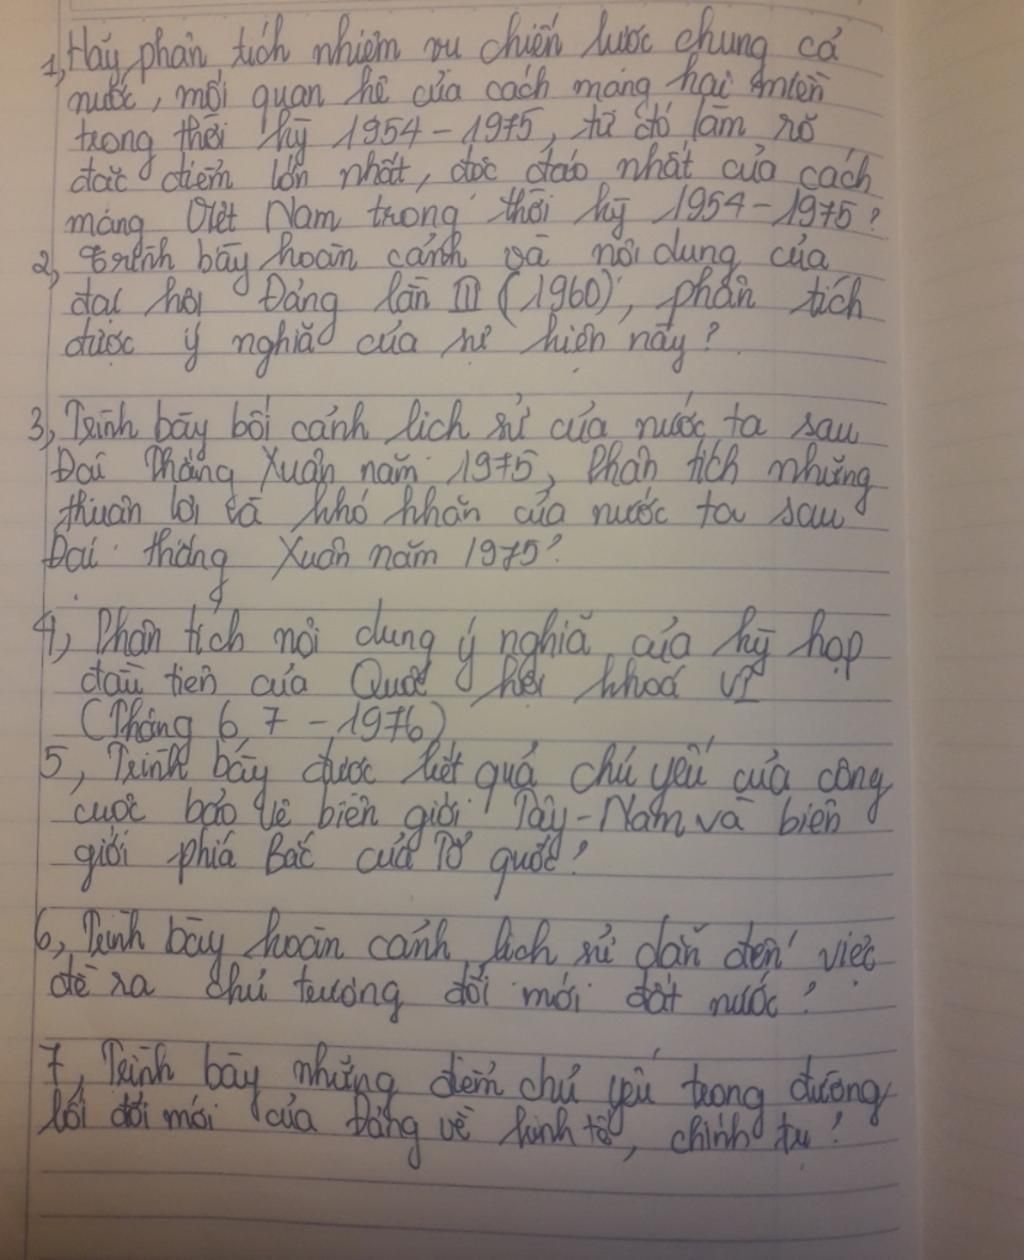 1, Hãy phân tích nhiệm vụ chiến lược chung cả
nước, mối quan hệ của cách mạng hai miền
trong thời kỳ 1954 - 1975, từ đó làm rõ
đặc điểm lớn nhất, độc đáo nhất của cách
mạng Việt Nam trong thời kỳ 1954 - 1975?
2, Trình bày hoàn cảnh và nội dung của
đại hội Đảng lần III (1960), phân tích
được ý nghĩa của sự kiện này?
3, Trình bày bối cảnh lịch sử của nước ta sau
Đại Thắng Xuân năm 1975, Phân tích những
thuận lợi và khó khăn của nước ta sau
Đại thắng Xuân năm 1975?
4, Phân tích nội dung ý nghĩa của kỳ họp
đầu tiên của Quốc hội khoá VI
(Tháng 6, 7 - 1976)
5, Trình bày được kết quả chủ yếu của công
cuộc bảo vệ biên giới Tây - Nam và biên
giới phía Bắc của Tổ quốc?
6, Trình bày hoàn cảnh lịch sử dẫn đến việc
đề ra chủ trương đổi mới đất nước?
7, Trình bày những điểm chủ yếu trong đường
lối đổi mới của Đảng về kinh tế, chính trị?